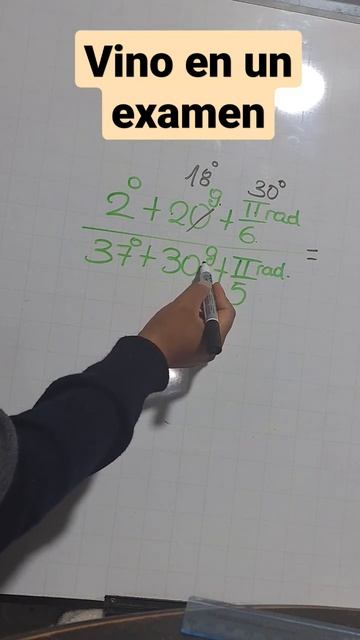 Vino en un
examen
18° 30°
2° + 20g + π rad
6
37° + 30g + π rad.
5
=